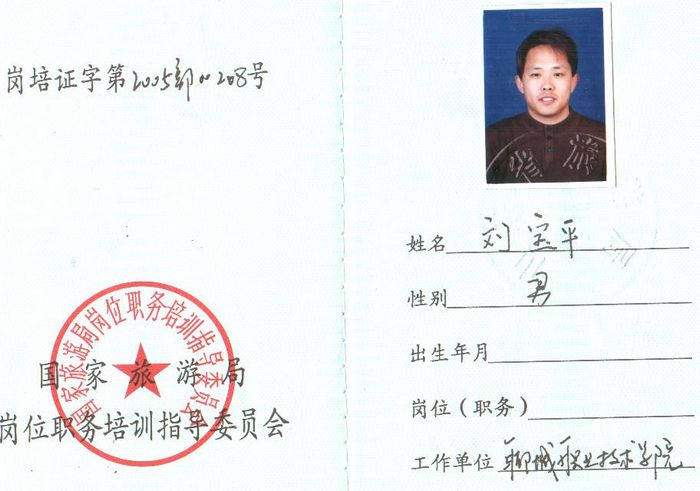 岗培证字第2005部011208号
国家旅游局岗位职务培训指导委员会
国家旅游局
岗位职务培训指导委员会
姓名 刘宝平
性别 男
出生年月
岗位（职务）
工作单位 聊城职业技术学院